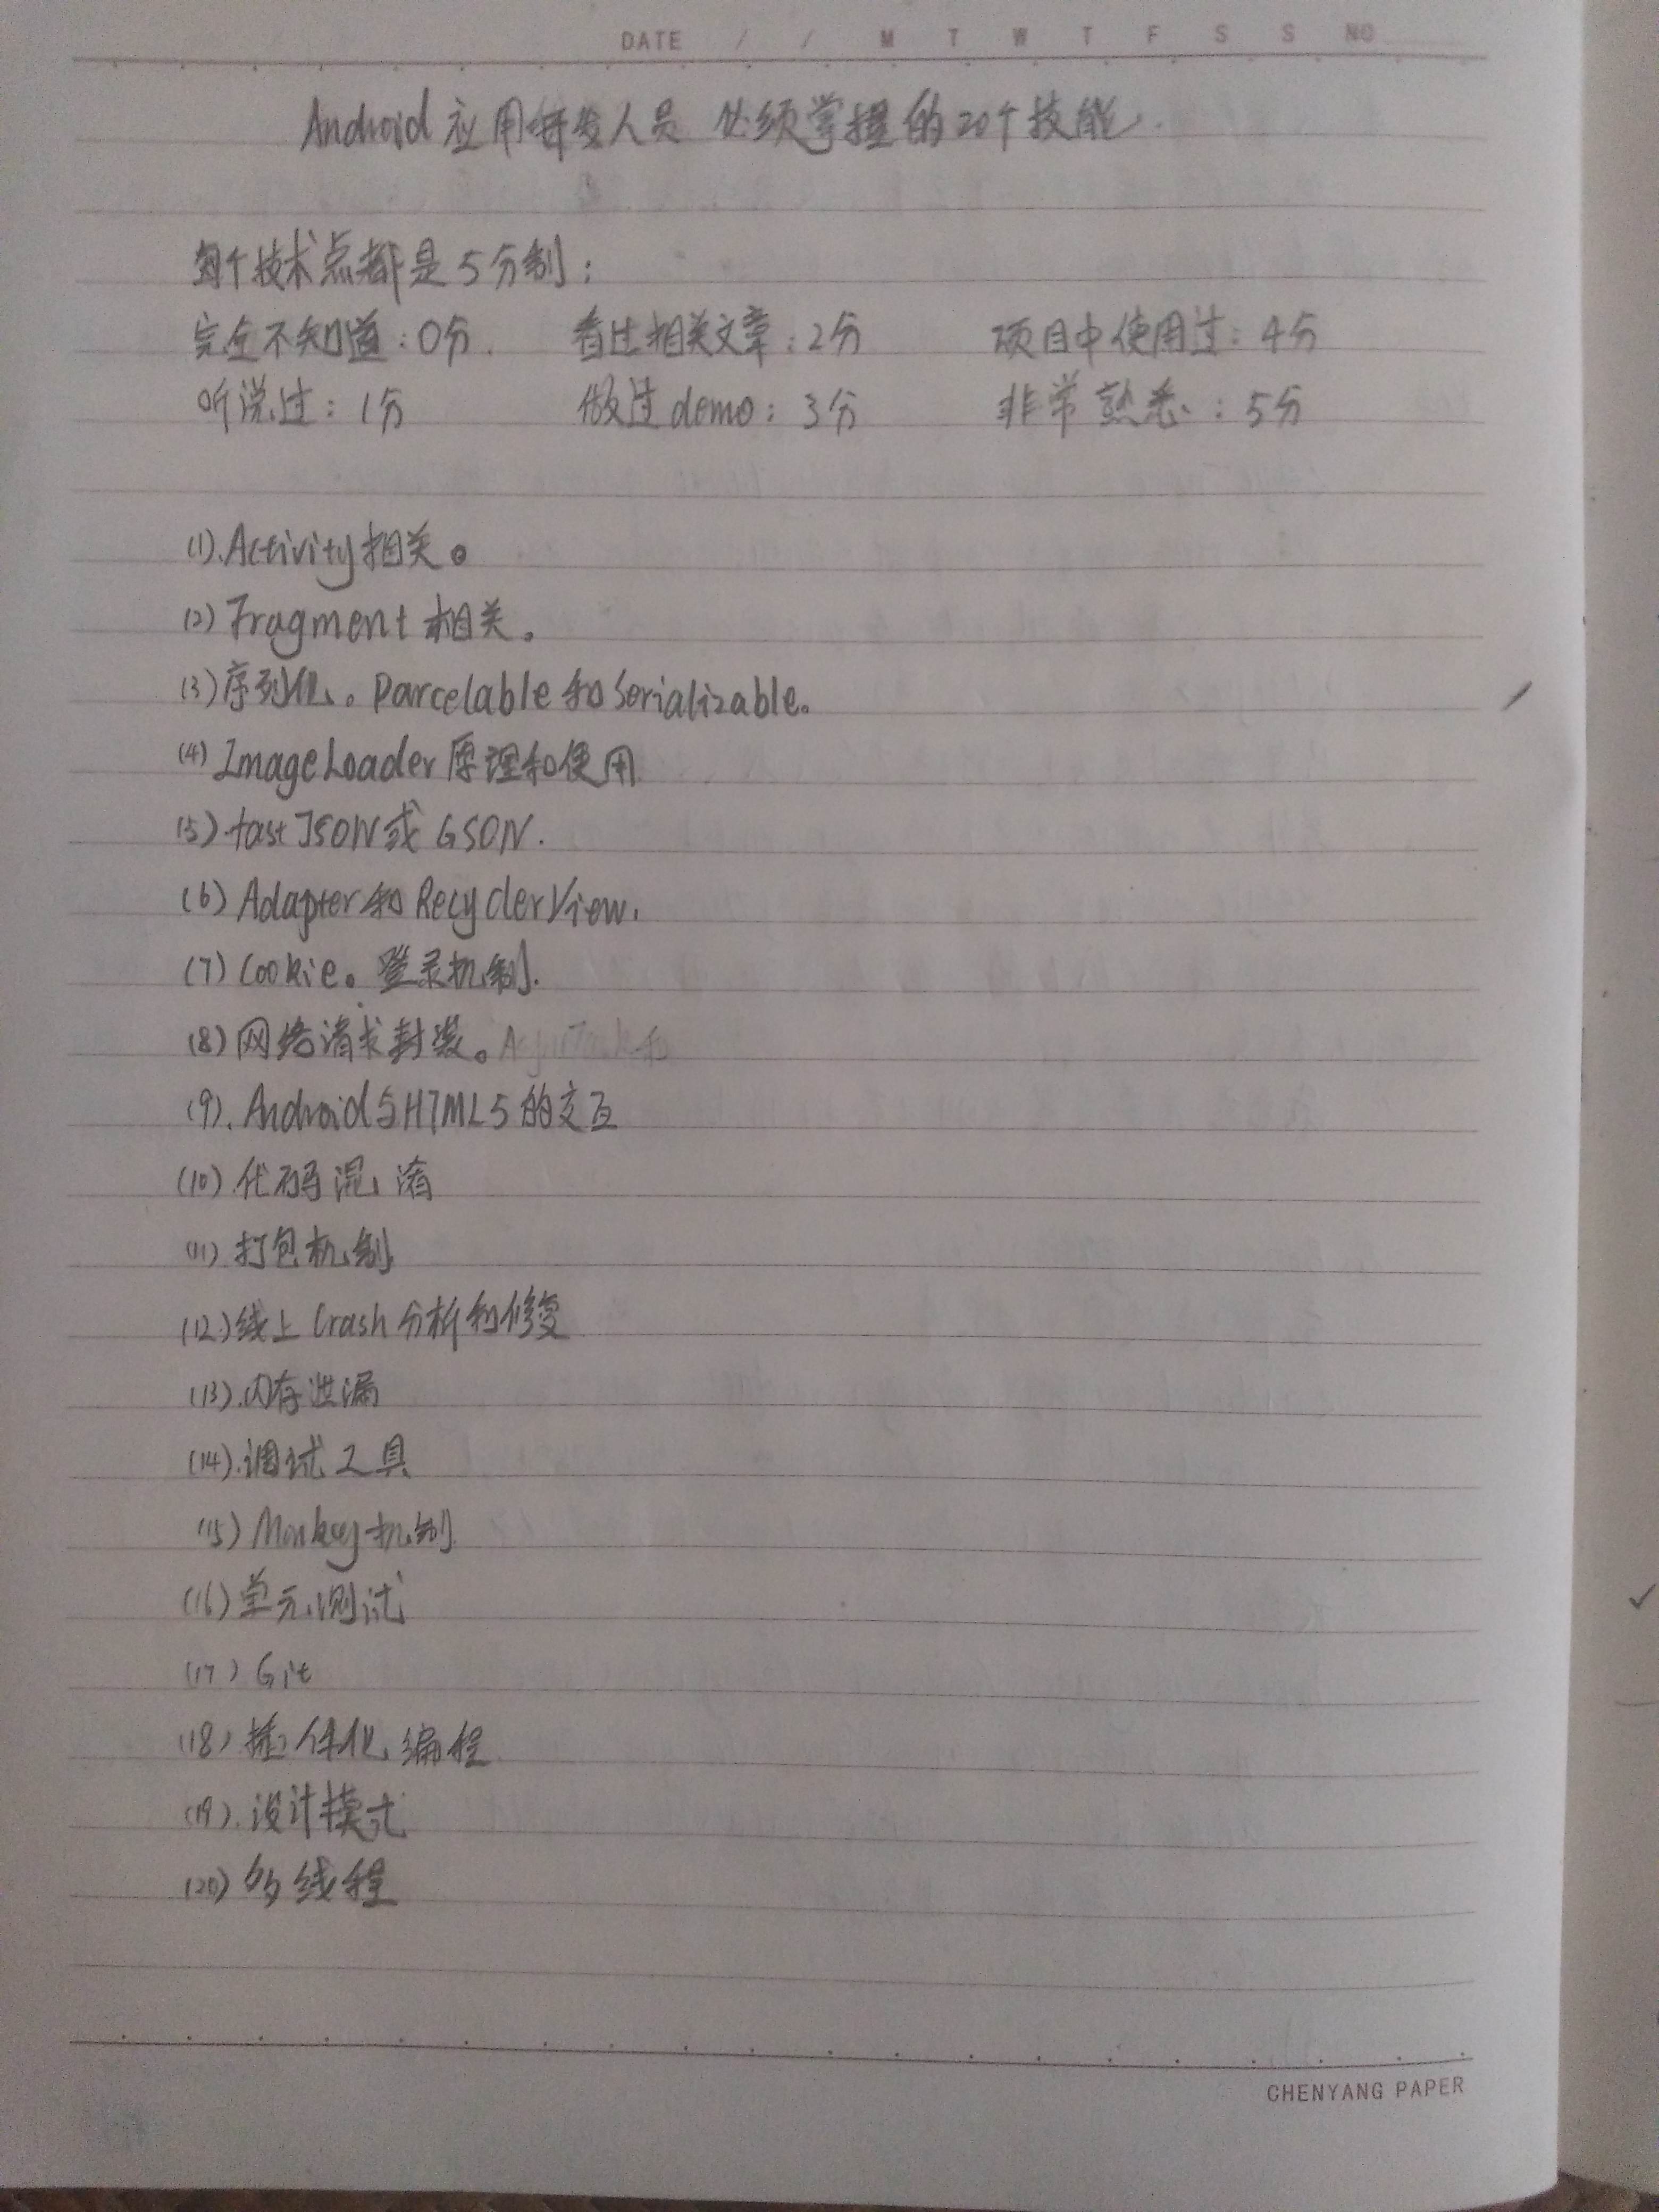 DATE / / M T W T F S S NO
Android应用开发人员 必须掌握的20个技能.
每个技术点都是5分制:
完全不知道:0分. 看过相关文章:2分 项目中使用过:4分
听说过:1分 做过demo:3分 非常熟悉:5分
(1).Activity相关。
(2) Fragment相关。
(3)序列化。Parcelable和Serializable。
(4) ImageLoader原理和使用
(5).fastJSON或GSON.
(6) Adapter和RecyclerView.
(7) Cookie。登录机制.
(8)网络请求封装。
(9).Android与HTML5的交互
(10).代码混淆
(11)打包机制
(12)线上Crash分析和修复
(13).内存泄漏
(14).调试工具
(15) Monkey机制
(16)单元测试
(17) Git
(18)插件化编程
(19).设计模式
(20)多线程
CHENYANG PAPER